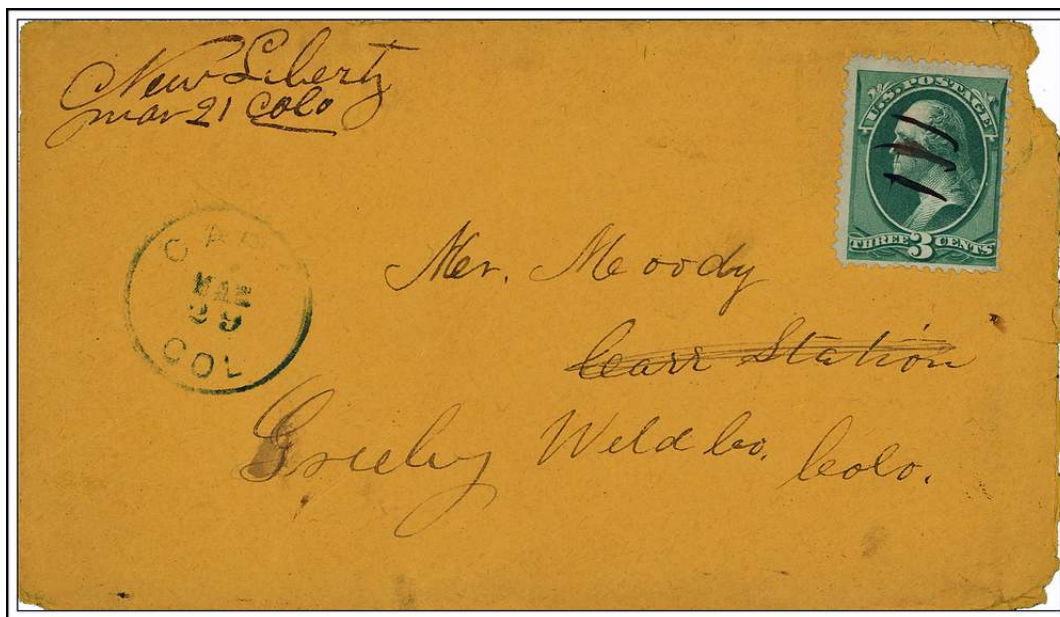 New Liberty
mar 21 Colo
U.S. POSTAGE
THREE 3 CENTS
CAR
MAR
29
COL
Mr. Moody
Carr Station
Greeley Weld Co. Colo.